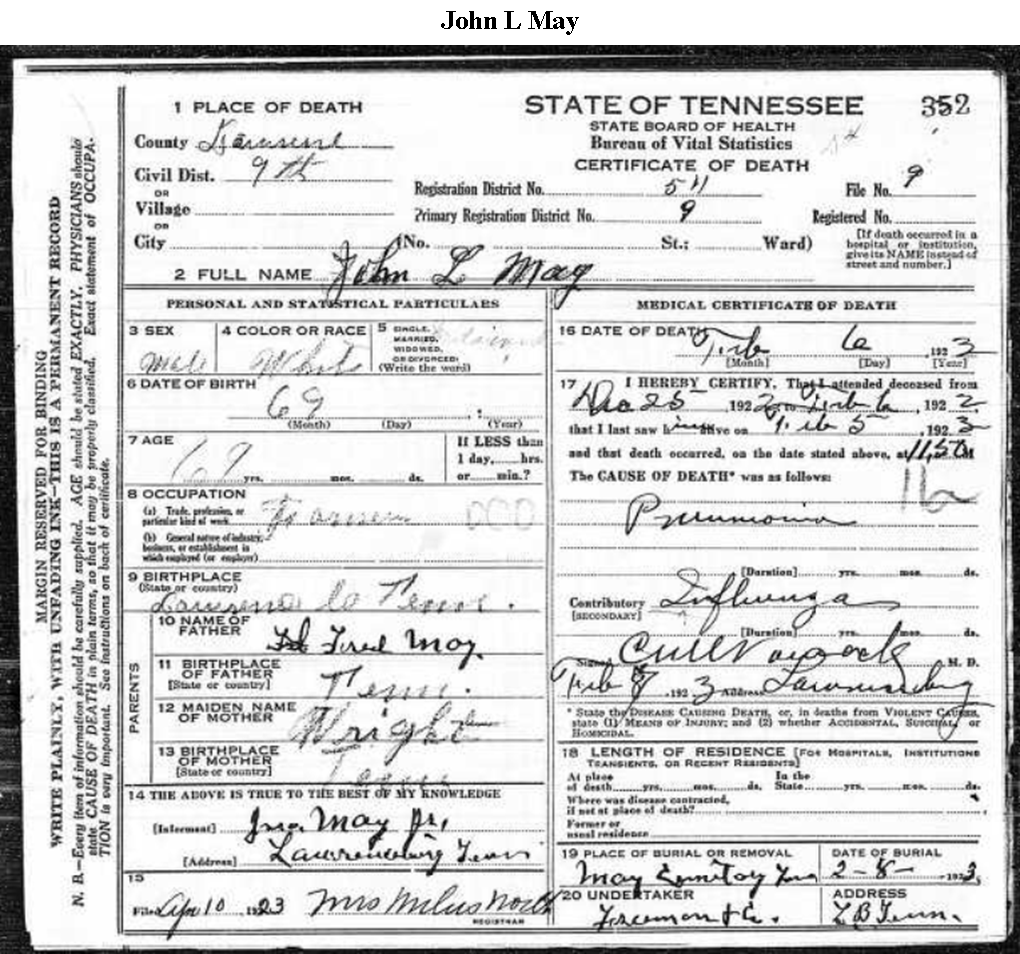 John L May
1 PLACE OF DEATH
STATE OF TENNESSEE
352
STATE BOARD OF HEALTH
Bureau of Vital Statistics
CERTIFICATE OF DEATH
County
Civil Dist. 9th
OR
Village
OR
City
Registration District No. 511
File No. 9
Primary Registration District No. 9
Registered No.
(No. St.; Ward)
[If death occurred in a hospital or institution, give its NAME instead of street and number.]
2 FULL NAME John L May
PERSONAL AND STATISTICAL PARTICULARS
3 SEX male
4 COLOR OR RACE White
5 SINGLE, MARRIED, WIDOWED, OR DIVORCED: (Write the word)
6 DATE OF BIRTH
69
(Month) (Day) (Year)
7 AGE
69 yrs. mos. ds.
If LESS than 1 day, hrs. or min.?
8 OCCUPATION
(a) Trade, profession, or particular kind of work Farmer
(b) General nature of industry, business, or establishment in which employed (or employer)
9 BIRTHPLACE
(State or country)
Co Tenn.
PARENTS
10 NAME OF FATHER Fred May.
11 BIRTHPLACE OF FATHER
[State or country] Tenn.
12 MAIDEN NAME OF MOTHER Wright
13 BIRTHPLACE OF MOTHER
[State or country] Tenn
14 THE ABOVE IS TRUE TO THE BEST OF MY KNOWLEDGE
[Informant] Jno May Jr,
[Address] Lawrenceburg Tenn
15
Filed Apr 10 1923 Mrs Milus North
REGISTRAR
MEDICAL CERTIFICATE OF DEATH
16 DATE OF DEATH
Feb 6 , 1923
[Month] [Day] [Year]
17 I HEREBY CERTIFY, That I attended deceased from
Dec 25 , 1922, to Feb 6 , 1922,
that I last saw him alive on Feb 5 , 1923
and that death occurred, on the date stated above, at M
The CAUSE OF DEATH* was as follows:
11a
Pneumonia
[Duration] yrs. mos. ds.
Contributory Influenza
[SECONDARY]
[Duration] yrs. mos. ds.
Signed M. D.
Feb , 1923 Address Lawrenceburg
* State the DISEASE CAUSING DEATH, or, in deaths from VIOLENT CAUSES, state (1) MEANS OF INJURY; and (2) whether ACCIDENTAL, SUICIDAL, or HOMICIDAL.
18 LENGTH OF RESIDENCE [FOR HOSPITALS, INSTITUTIONS TRANSIENTS, OR RECENT RESIDENTS]
At place of death yrs. mos. ds. In the State yrs. mos. ds.
Where was disease contracted, if not at place of death?
Former or usual residence
19 PLACE OF BURIAL OR REMOVAL
DATE OF BURIAL
May
2-8- 1923.
20 UNDERTAKER
ADDRESS
Freemon & Co.
L B Tenn.
MARGIN RESERVED FOR BINDING
WRITE PLAINLY, WITH UNFADING INK—THIS IS A PERMANENT RECORD
N. B.—Every item of information should be carefully supplied. AGE should be stated EXACTLY. PHYSICIANS should
state CAUSE OF DEATH in plain terms, so that it may be properly classified. Exact statement of OCCUPA-
TION is very important. See instructions on back of certificate.